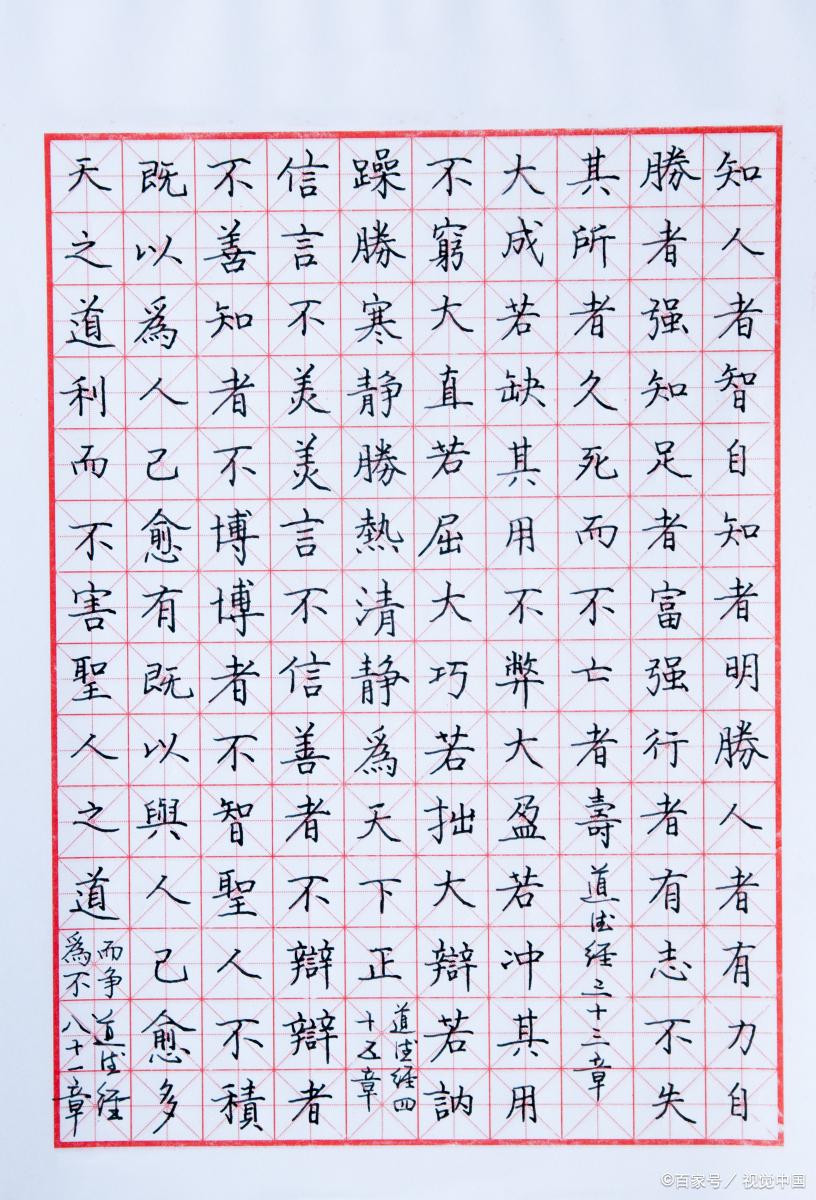 知人者智自知者明勝人者有力自
勝者强知足者富强行者有志不失
其所者久死而不亡者壽道德经三十三章
大成若缺其用不弊大盈若冲其用
不窮大直若屈大巧若拙大辯若訥
躁勝寒静勝熱清静爲天下正道德经四十五章
信言不美美言不信善者不辯辯者
不善知者不博博者不智聖人不積
既以爲人己愈有既以與人己愈多
天之道利而不害聖人之道爲而不争道德经八十一章
©百家号/视觉中国